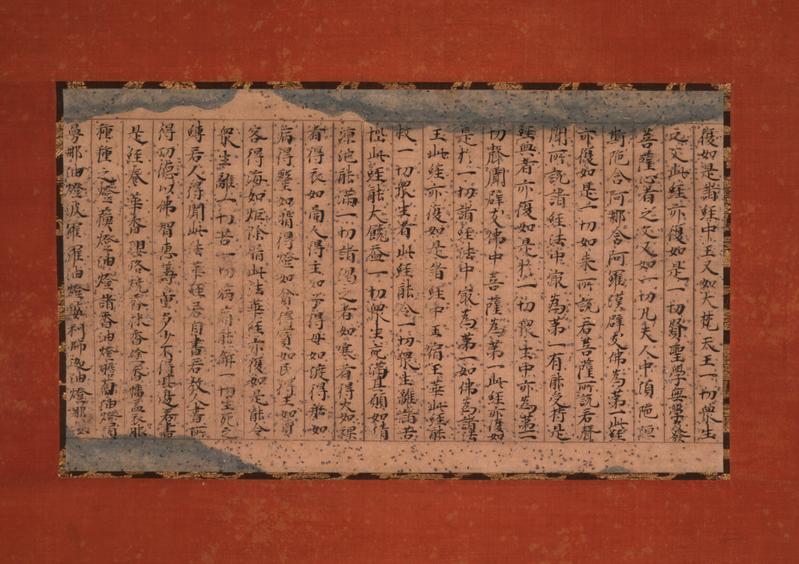 復如是諸經中王又如大梵天王一切衆生
之父此經亦復如是一切賢聖學無學發
菩薩心者之父又如一切凡夫人中須陀洹
斯陀含阿那含阿羅漢辟支佛為第一此經
亦復如是一切如来所說若菩薩所說若聲
聞所說諸經法中㝡為第一有能受持是
經典者亦復如是於一切衆生中亦為第一
切聲聞辟支佛中菩薩為第一此經亦復如
是於一切諸經法中㝡為第一如佛為諸法
王此經亦復如是諸經中王宿王華此經能
救一切衆生者此經能令一切衆生離諸苦
惱此經能大饒益一切衆生充滿其願如清
涼池能滿一切諸渴乏者如寒者得火如裸
者得衣如商人得主如子得母如渡得船如
病得醫如暗得燈如貧得寶如民得王如賈
客得海如炬除暗此法華經亦復如是能令
衆生離一切苦一切病痛能解一切生死之
縛若人得聞此法華經若自書若教人書所
得功德以佛智惠籌量多少不得其邊若書
是經卷華香瓔珞燒香末香塗香幡蓋衣服
種種之燈蘇燈油燈諸香油燈瞻蔔油燈須
曼那油燈波羅羅油燈婆利師迦油燈那